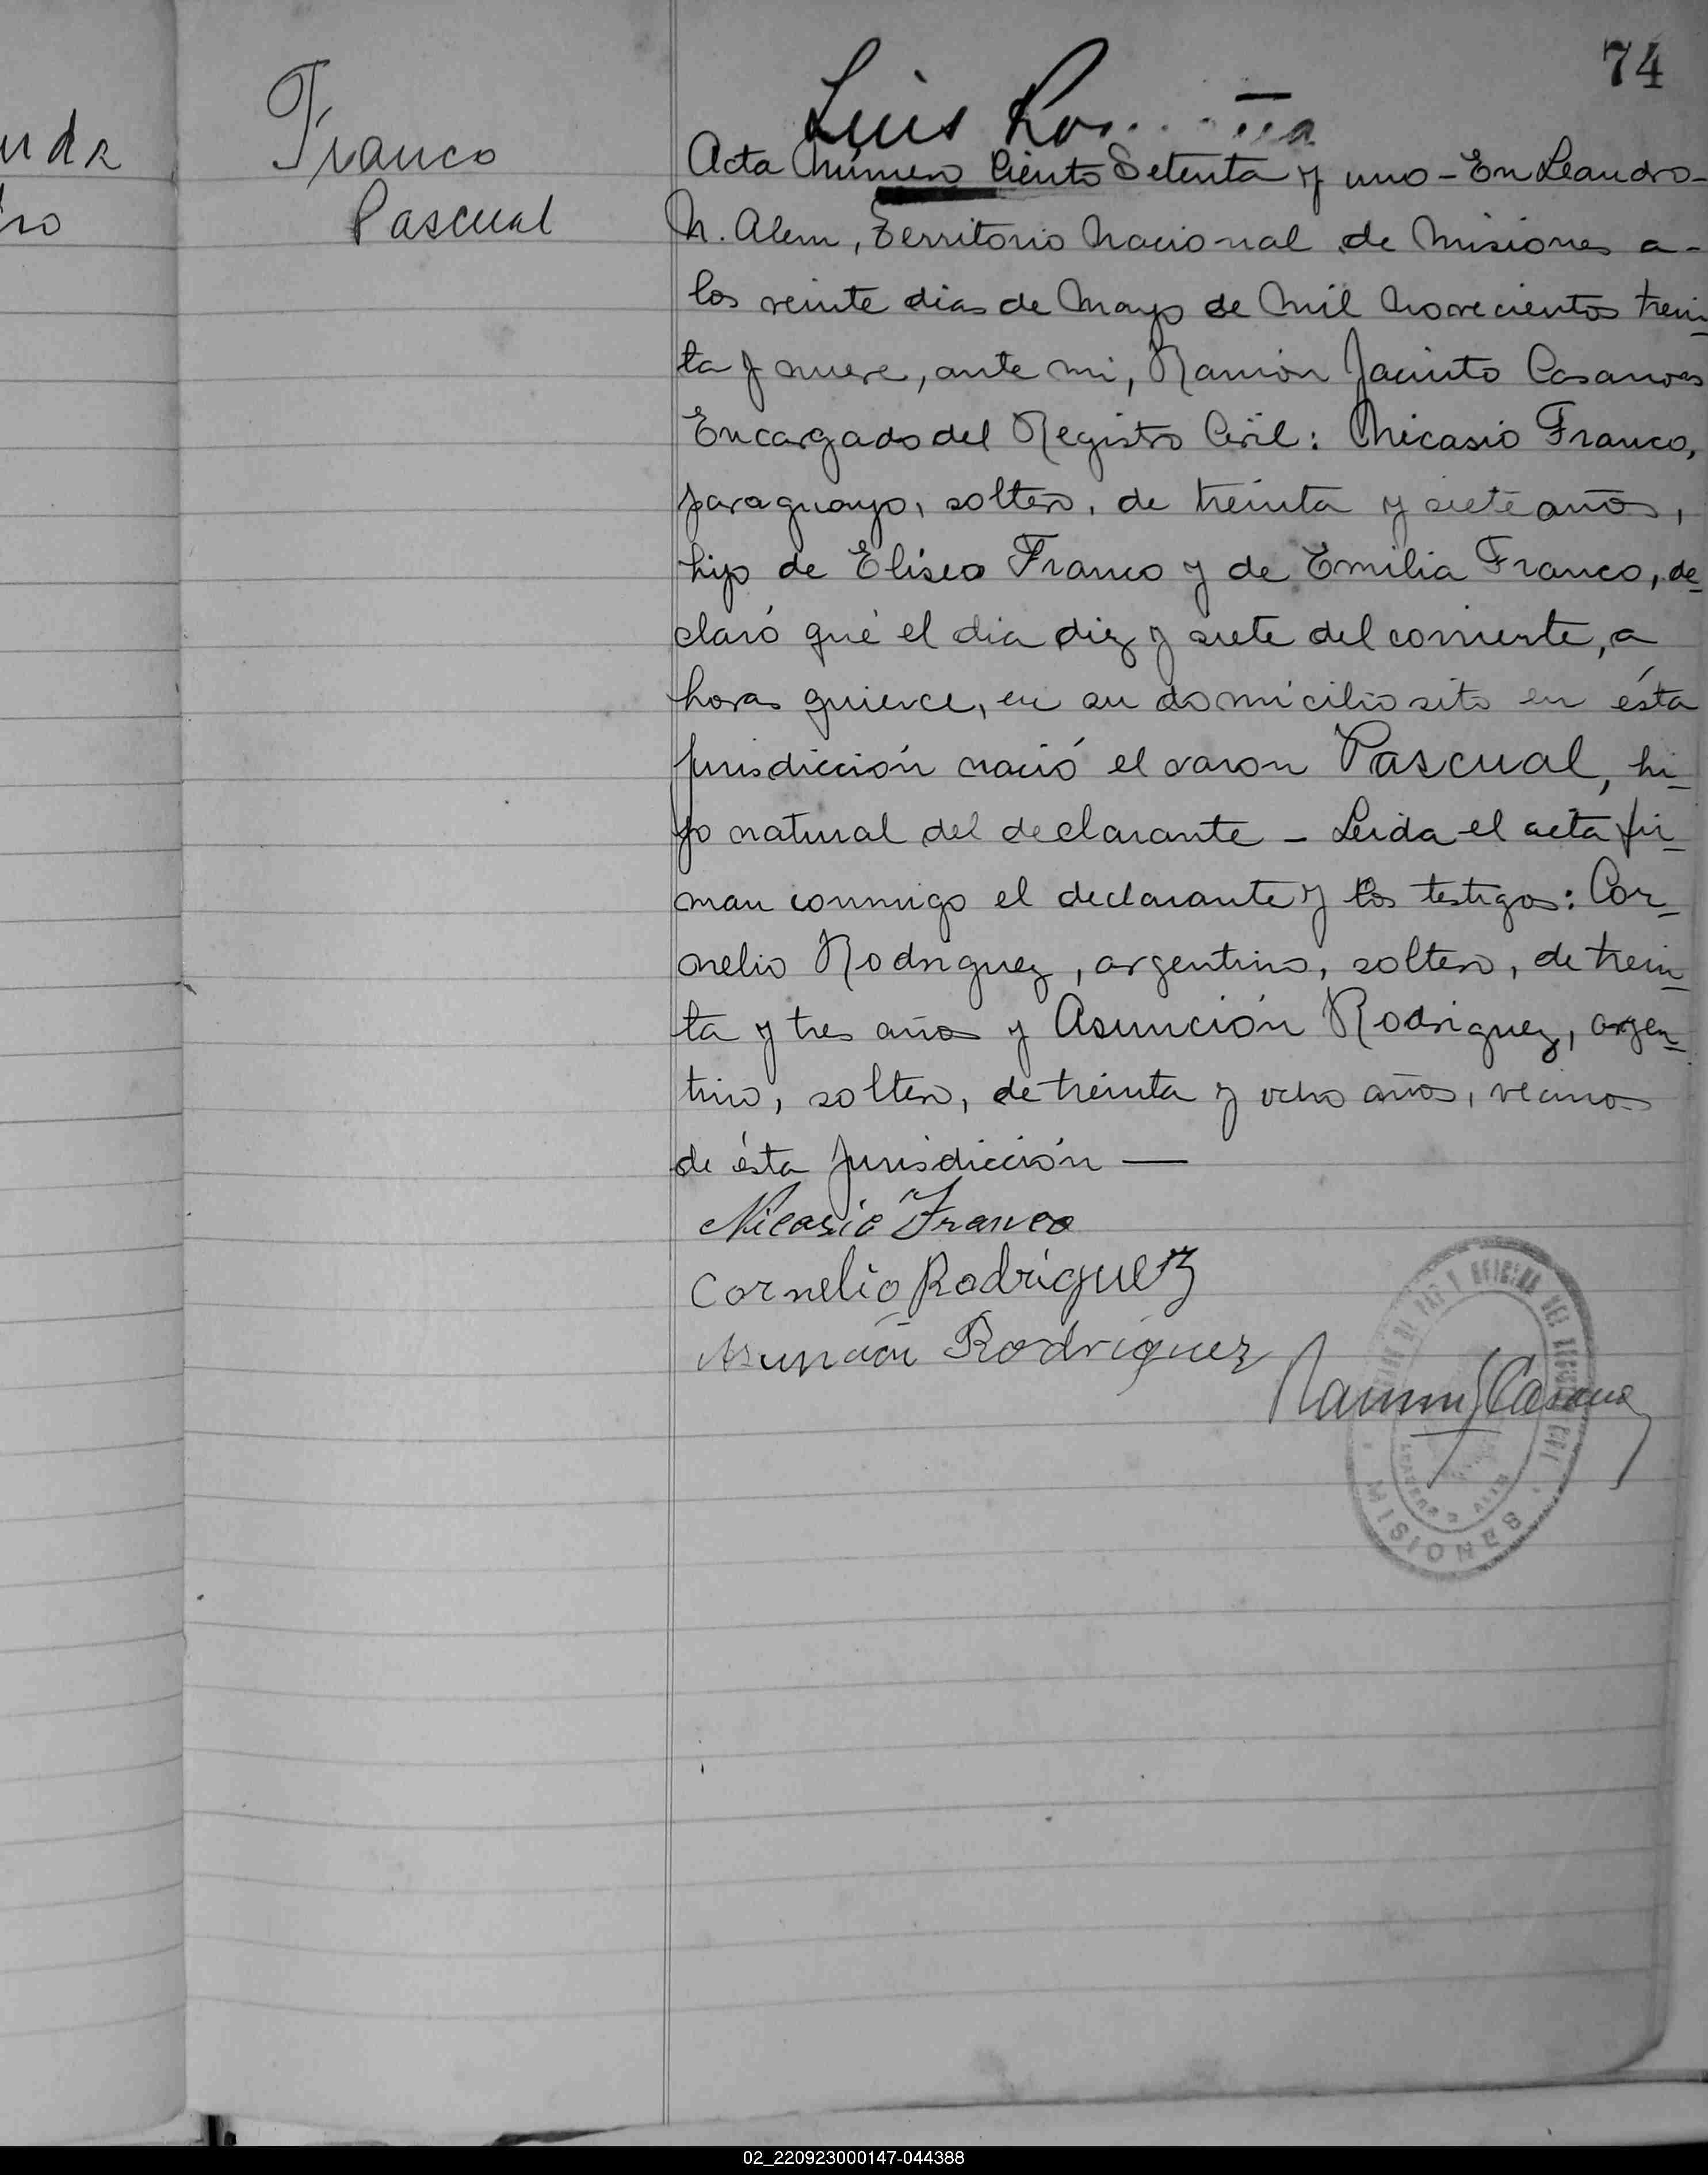 74
Luis
Franco
Pascual
Acta Número Ciento Setenta y uno - En Leandro-
N. Alem, Territorio Nacional de Misiones a-
los veinte dias de Mayo de Mil Novecientos trein-
ta y nueve, ante mi, Ramón Jacinto Casanova
Encargado del Registro Civil: Nicasio Franco,
paraguayo, soltero, de treinta y siete años,
hijo de Eliseo Franco y de Emilia Franco, de-
claró que el dia diez y siete del corriente, a
horas quince, en su domicilio sito en ésta
jurisdicción nació el varon Pascual, hi-
jo natural del declarante - Leida el acta fir-
man conmigo el declarante y los testigos: Cor-
nelio Rodriguez, argentino, soltero, de trein-
ta y tres años y Asunción Rodriguez, argen-
tino, soltero, de treinta y ocho años, vecinos
de ésta jurisdicción —
Nicasio Franco
Cornelio Rodriguez
Asunción Rodriguez
Ramon J Casanova
MISIONES
02_220923000147-044388